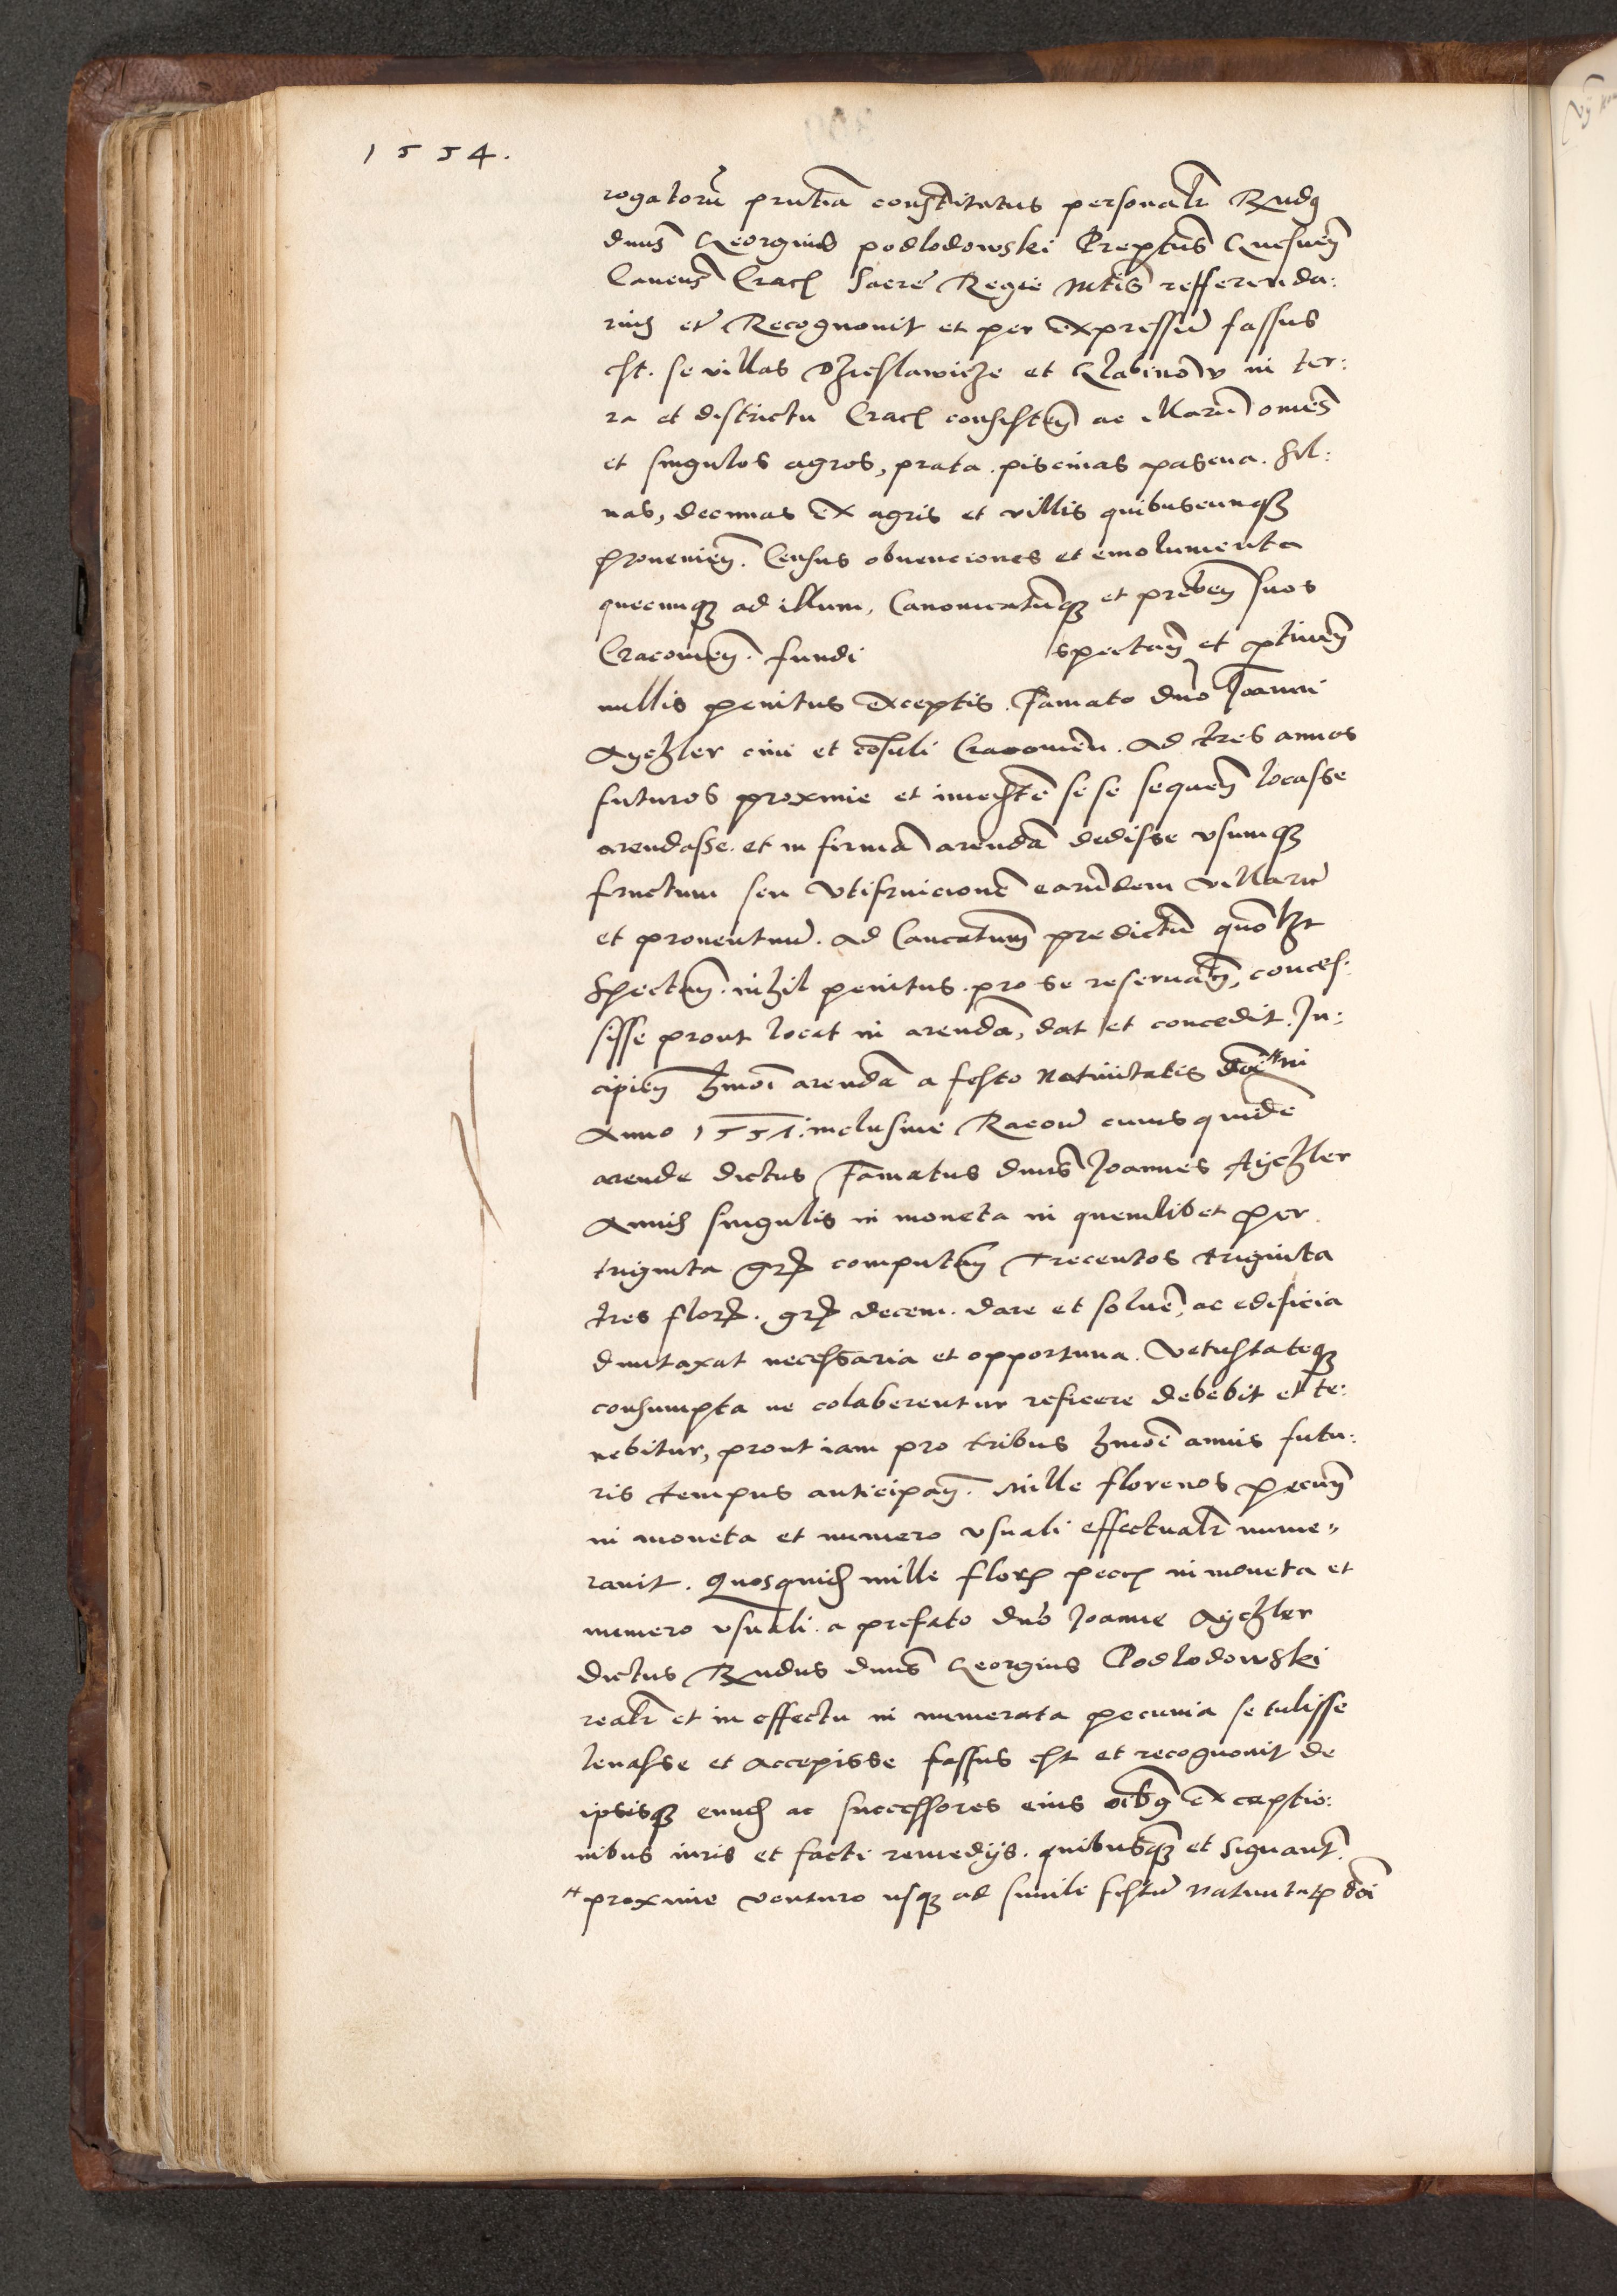 1554.
rogatorũ pntia constitutus personalr Rndq
dnus Georgius podlodowski Preptus Gnesnen
Canens Crac Sacre Regie Mtis refferenda:
rius etc Recognovit et per expressũ fassus
est. se villas Dzieslawicze et Glabinow in ter:
ra et districtu Crac consisten ac illarũ omes
et singulos agros, prata. piscinas pascua. Sil:
uas, decimas ex agris et villis quibuscunq
prouenien. Census obuenciones et emolumenta
quecunq ad illum, Canonicatũq et preben suos
Cracouien. fundi spectan et ptinen
nullis penitus exceptis. Famato dno Joanni
Ayczler ciui et cosuli Cracouien. Ad tres annos
futuros proxime et immediate se se sequen locasse
arendasse. et in firmã arendã dedisse vsumq
fructum seu vtifruicionẽ earũdem villarũ
et prouentuũ. ad Cancatum predictũ quolzt
Spectan. nihil penitus. pro se reseruan, conces:
sisse prout locat in arendã, dat et concedit. In:
cipien hmoi arendã a festo Natiuitatis doi # ni
Anno 1551. inclusiue Racoue cuius quidẽ
arende dictus Famatus dnus Joannes Ayczler
Annis singulis in moneta in quemlibet per
triginta gr computan trecentos triginta
tres flor. gr decem. dare et soluẽ, ac edificia
duntaxat necessaria et opportuna. Vetustateq
consumpta ne colaberentur reficere debebit et te:
nebitur, prout iam pro tribus hmoi annis futu:
ris tempus anticipan. Mille florenos pecun
in moneta et numero vsuali effectualr nume„
rauit. Quosquid mille flor pecc in moneta et
numero vsuali. a prefato dno Joanne Ayczler
dictus Rndus dnus Georgius Podlodowski
realr et in effectu in numerata pecunia se tulisse
leuasse et accepisse fassus est et recognouit de
ipsisq eund ac successores eius oibq exceptio:
nibus iuris et facti remedijs. quibusq et signant.
# proxime venturo usq ad simile festũ natiuitatis doi